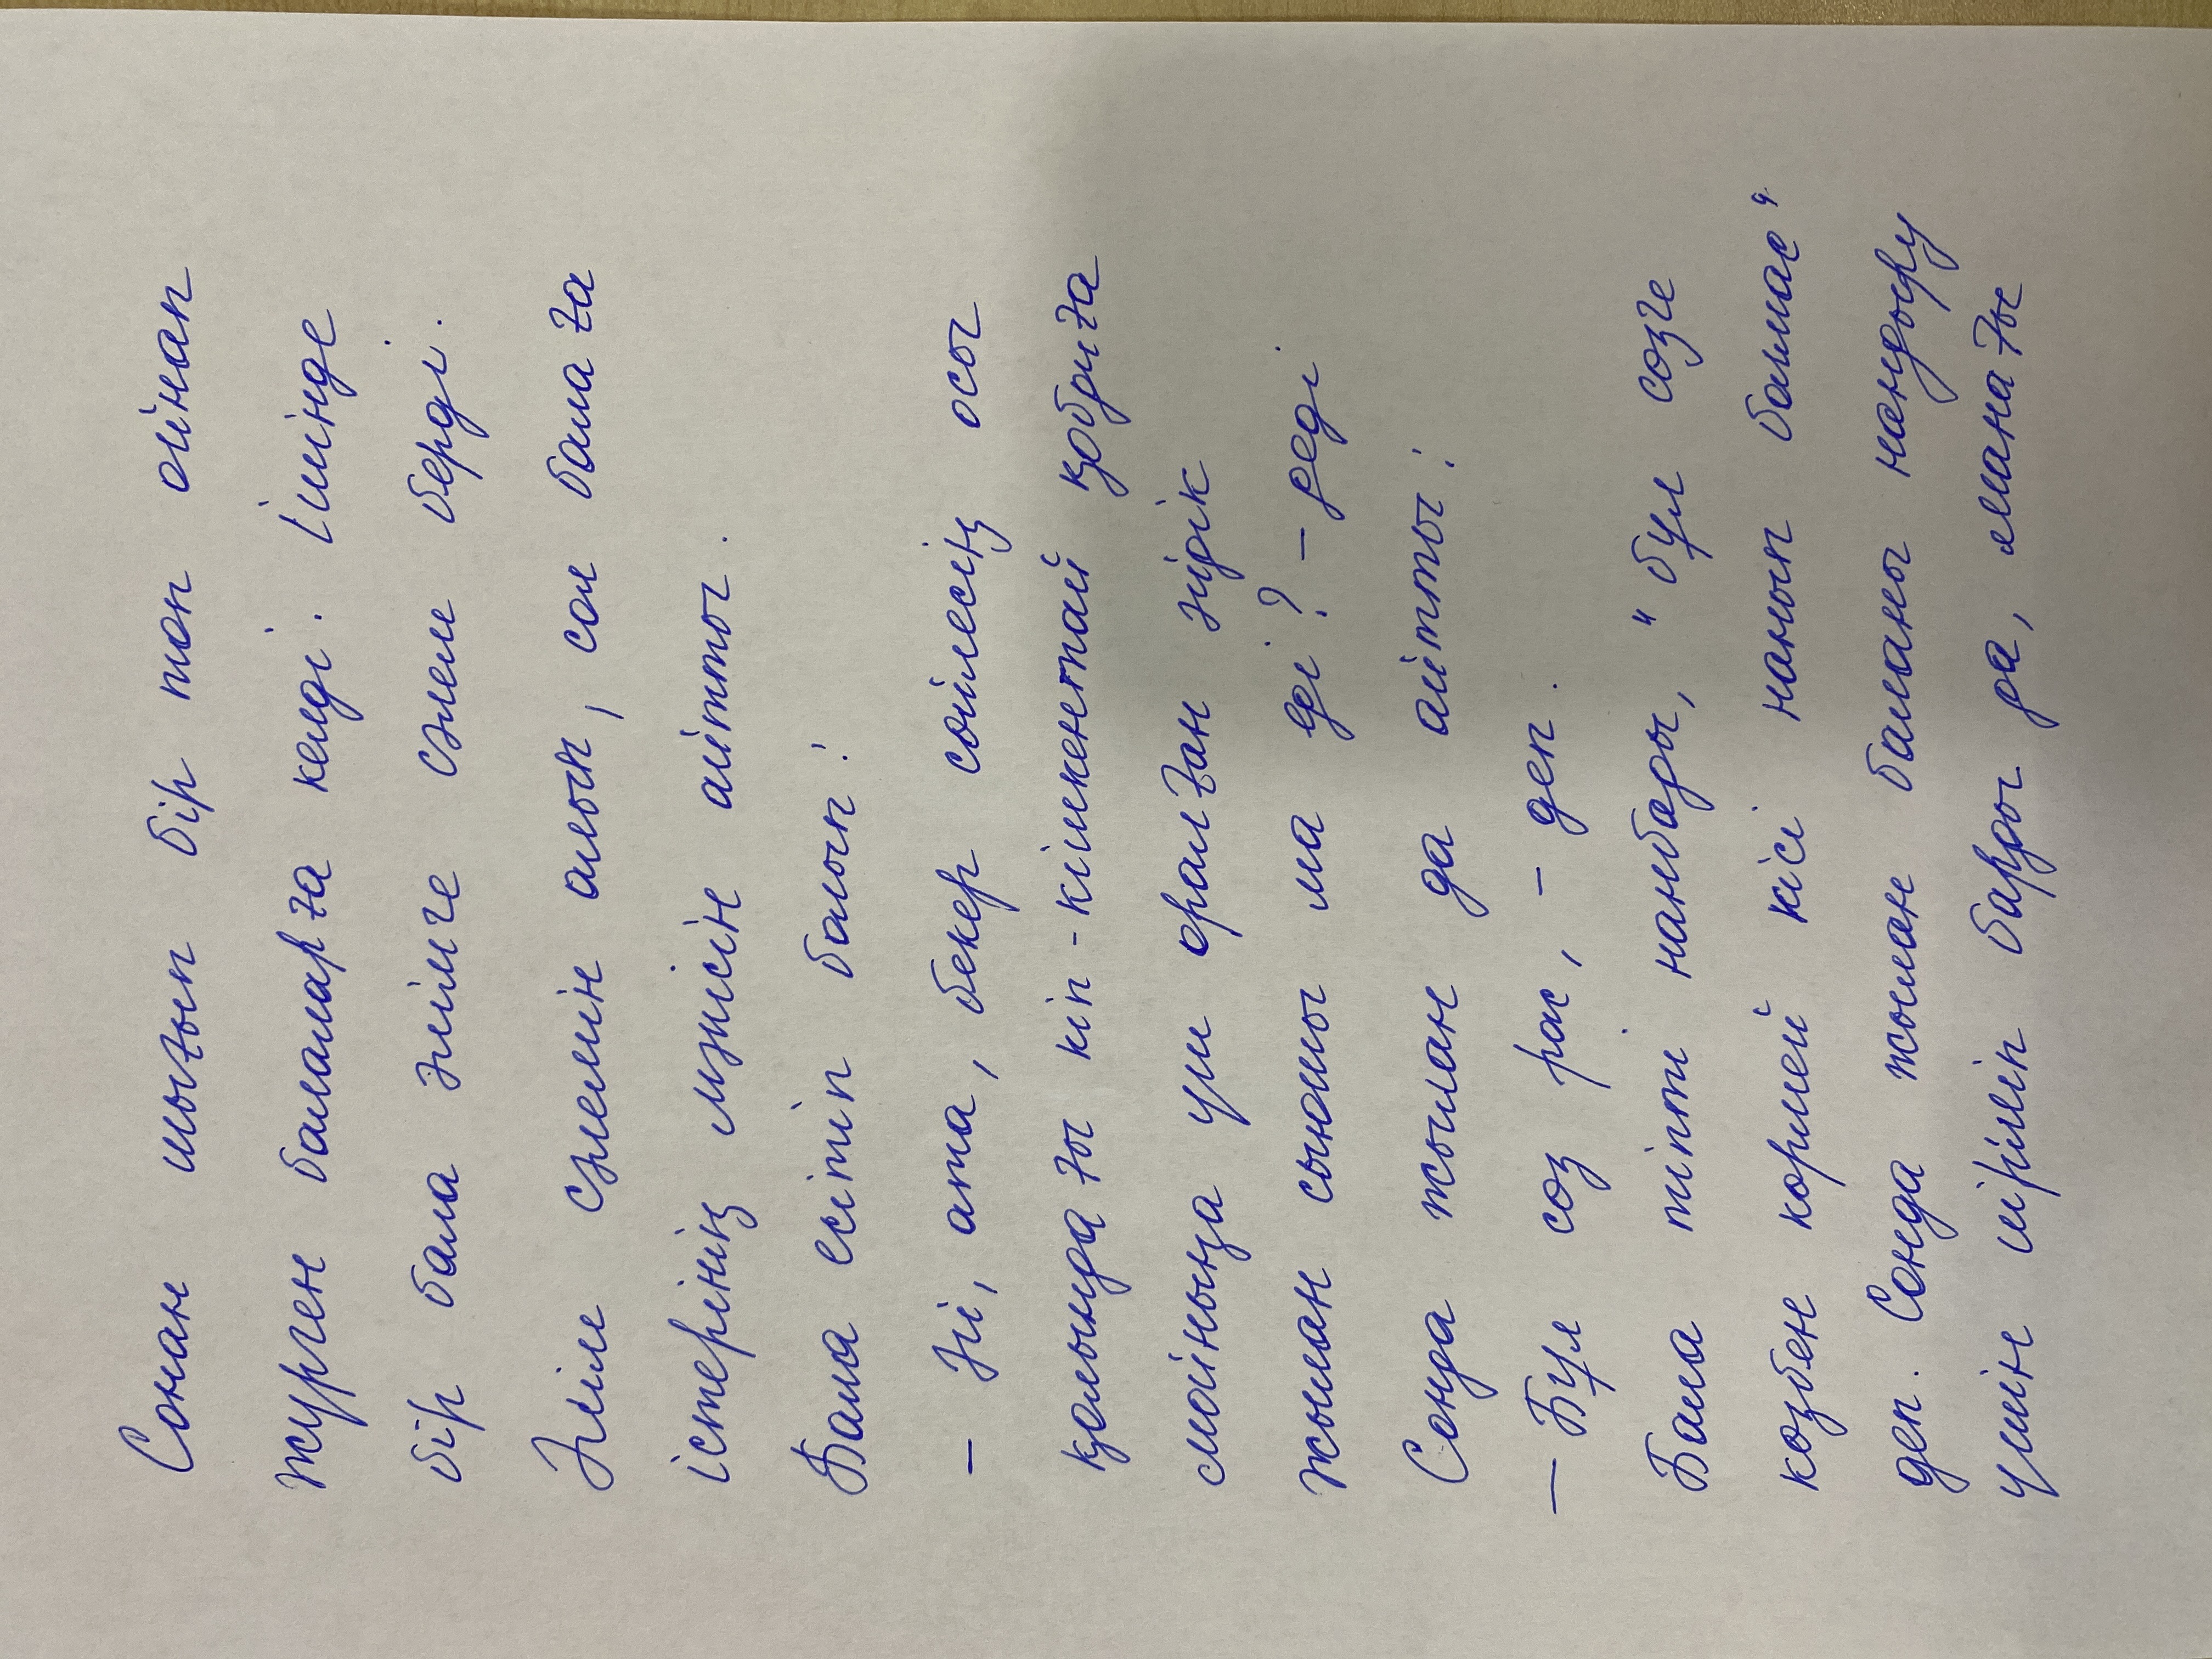 Сонан шығып бір топ ойнап
жүрген балаларға келді. Ішінде
бір бала әкімге сәлем берді.
Әкім сәлемін алып, сол балаға
істерінің мәнісін айтты.
Бала есітіп болып:
– Әй, ата, бекер сөйлесің осы
қолындағы кіп-кішкентай қобдиға
мойныңа үш оралған әйдік
жылан сыюшы ма еді? – деді
Сонда жылан да айтты:
– Бұл сөз рас, – деп.
Бала тіпті нанбады, "бұл сөзге
көзбен көрмей кісі нанып болмас"
деп. Сонда жылан баланы нандыру
үшін шірініп барды да, манағы